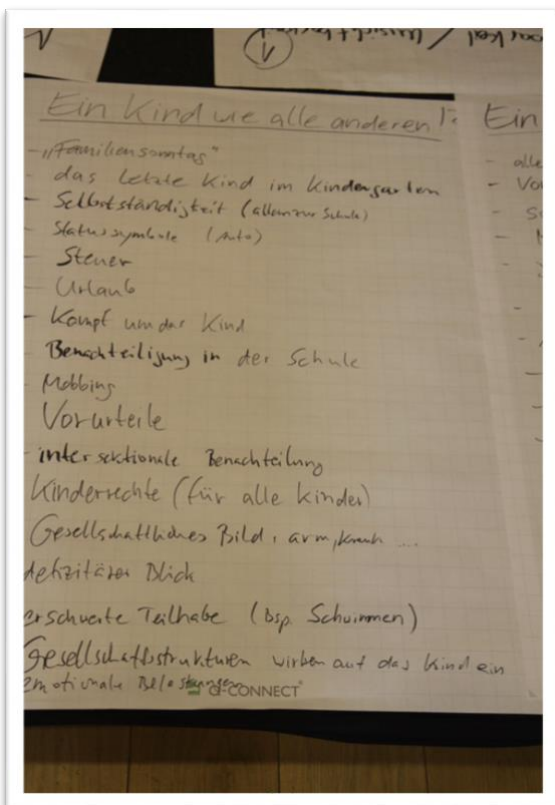 Ein Kind wie alle anderen!?
Ein
- „Familiensonntag"
- alle
- das letzte Kind im Kindergarten
- Selbstständigkeit (allein zur Schule)
- Statussymbole (Auto)
- Steuer
- Urlaub
- Kampf um das Kind
Benachteiligung in der Schule
Mobbing
Vorurteile
- intersektionale Benachteilung
Kinderrechte (für alle Kinder)
Gesellschaftliches Bild, arm, krank ....
defizitärer Blick
erschwerte Teilhabe (bsp. Schwimmen)
Gesellschaftsstrukturen wirken auf das Kind ein
emotionale Belastungen
CONNECT